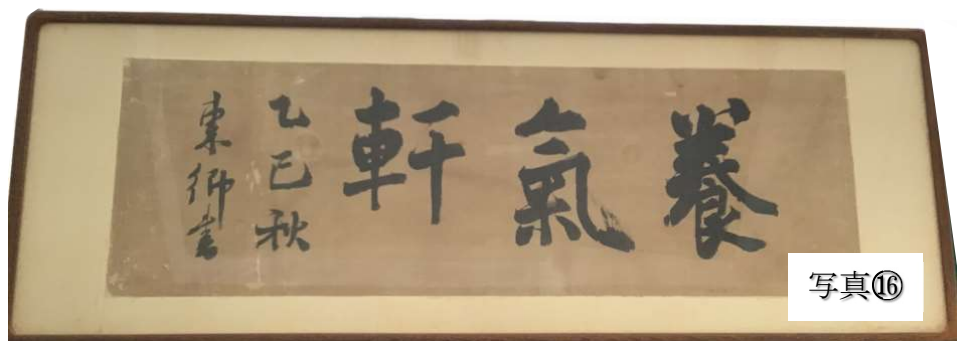 養氣軒
乙巳秋
東郷書
写真⑯